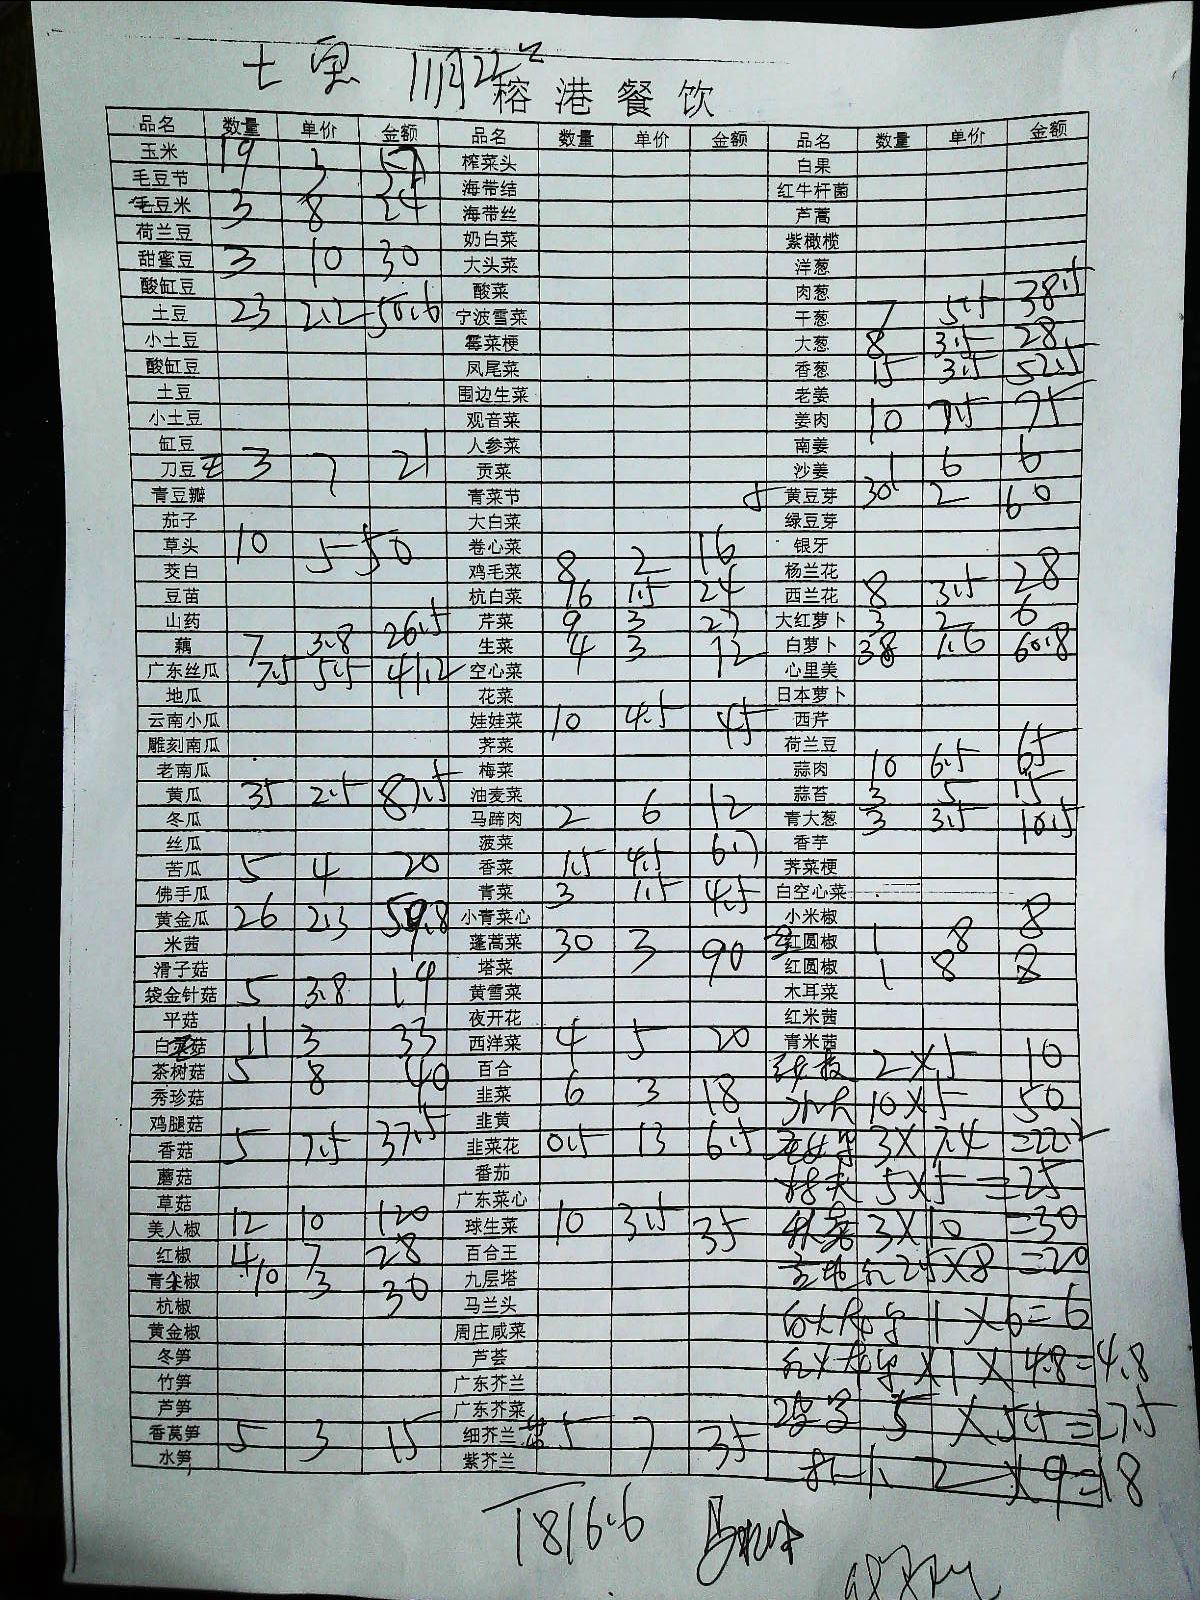 11月22
榕港餐饮
品名 数量 单价 金额 品名 数量 单价 金额 品名 数量 单价 金额
玉米 19 3 57 榨菜头 白果
毛豆节 海带结 红牛杆菌
毛豆米 3 8 24 海带丝 芦蒿
荷兰豆 奶白菜 紫橄榄
甜蜜豆 3 10 30 大头菜 洋葱
酸缸豆 酸菜 肉葱
土豆 23 2.2 50.6 宁波雪菜 干葱 7 5.5 38.5
小土豆 霉菜梗 大葱 8 3.5 28
酸缸豆 凤尾菜 香葱 15 3.5 52.5
土豆 围边生菜 老姜
小土豆 观音菜 姜肉 10 7.5 75
缸豆 人参菜 南姜
刀豆 3 7 21 贡菜 沙姜 1 6 6
青豆瓣 青菜节 黄豆芽 30 2 60
茄子 大白菜 绿豆芽
草头 10 5 50 卷心菜 银牙
茭白 鸡毛菜 8 2 16 杨兰花
豆苗 杭白菜 16 1.5 24 西兰花 8 3.5 28
山药 芹菜 9 3 27 大红萝卜 3 2 6
藕 7 3.8 26.5 生菜 4 3 12 白萝卜 38 1.6 60.8
广东丝瓜 7.5 5.5 41.2 空心菜 心里美
地瓜 花菜 日本萝卜
云南小瓜 娃娃菜 10 4.5 45 西芹
雕刻南瓜 荠菜 荷兰豆
老南瓜 梅菜 蒜肉 10 6.5 65
黄瓜 35 2.5 87.5 油麦菜 蒜苔 3 5 15
冬瓜 马蹄肉 2 6 12 青大葱 3 3.5 10.5
丝瓜 菠菜 香芋
苦瓜 5 4 20 香菜 1.5 4.5 6.7 荠菜梗
佛手瓜 青菜 3 1.5 4.5 白空心菜
黄金瓜 26 2.3 59.8 小青菜心 小米椒
米茜 蓬蒿菜 30 3 90 红圆椒 1 8 8
滑子菇 塔菜 红圆椒 1 8 8
袋金针菇 5 3.8 19 黄雪菜 木耳菜
平菇 夜开花 红米茜
白菇 11 3 33 西洋菜 4 5 20 青米茜
茶树菇 5 8 40 百合 2×5 10
秀珍菇 韭菜 6 3 18 10×5 50
鸡腿菇 韭黄
香菇 5 7.5 37.5 韭菜花 0.5 13 6.5 3×7.4=22.2
蘑菇 番茄 5×5=25
草菇 广东菜心
美人椒 12 10 120 球生菜 10 3.5 35 3×10=30
红椒 4 7 28 百合王 2.5×8=20
青尖椒 10 3 30 九层塔
杭椒 马兰头 1×6=6
黄金椒 周庄咸菜
冬笋 芦荟 ×1×4.8=4.8
竹笋 广东芥兰
芦笋 广东芥菜 5×5.5=27.5
香莴笋 5 3 15 细芥兰 5 7 35
水笋 紫芥兰 2×9=18
1816.6